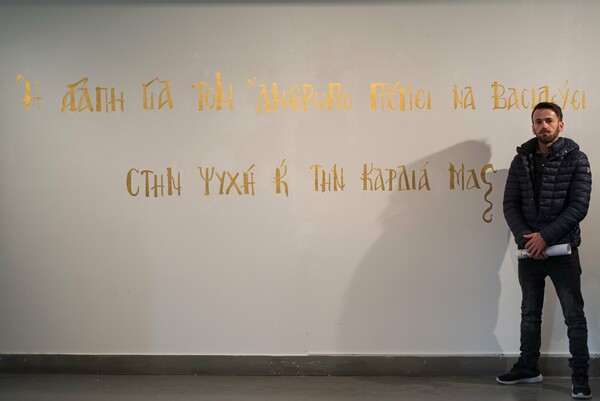 Ἡ ἀγάπη γιά τόν ἄνθρωπο πρέπει νά βασιλεύει
στήν ψυχή κ́ τήν καρδιά μας